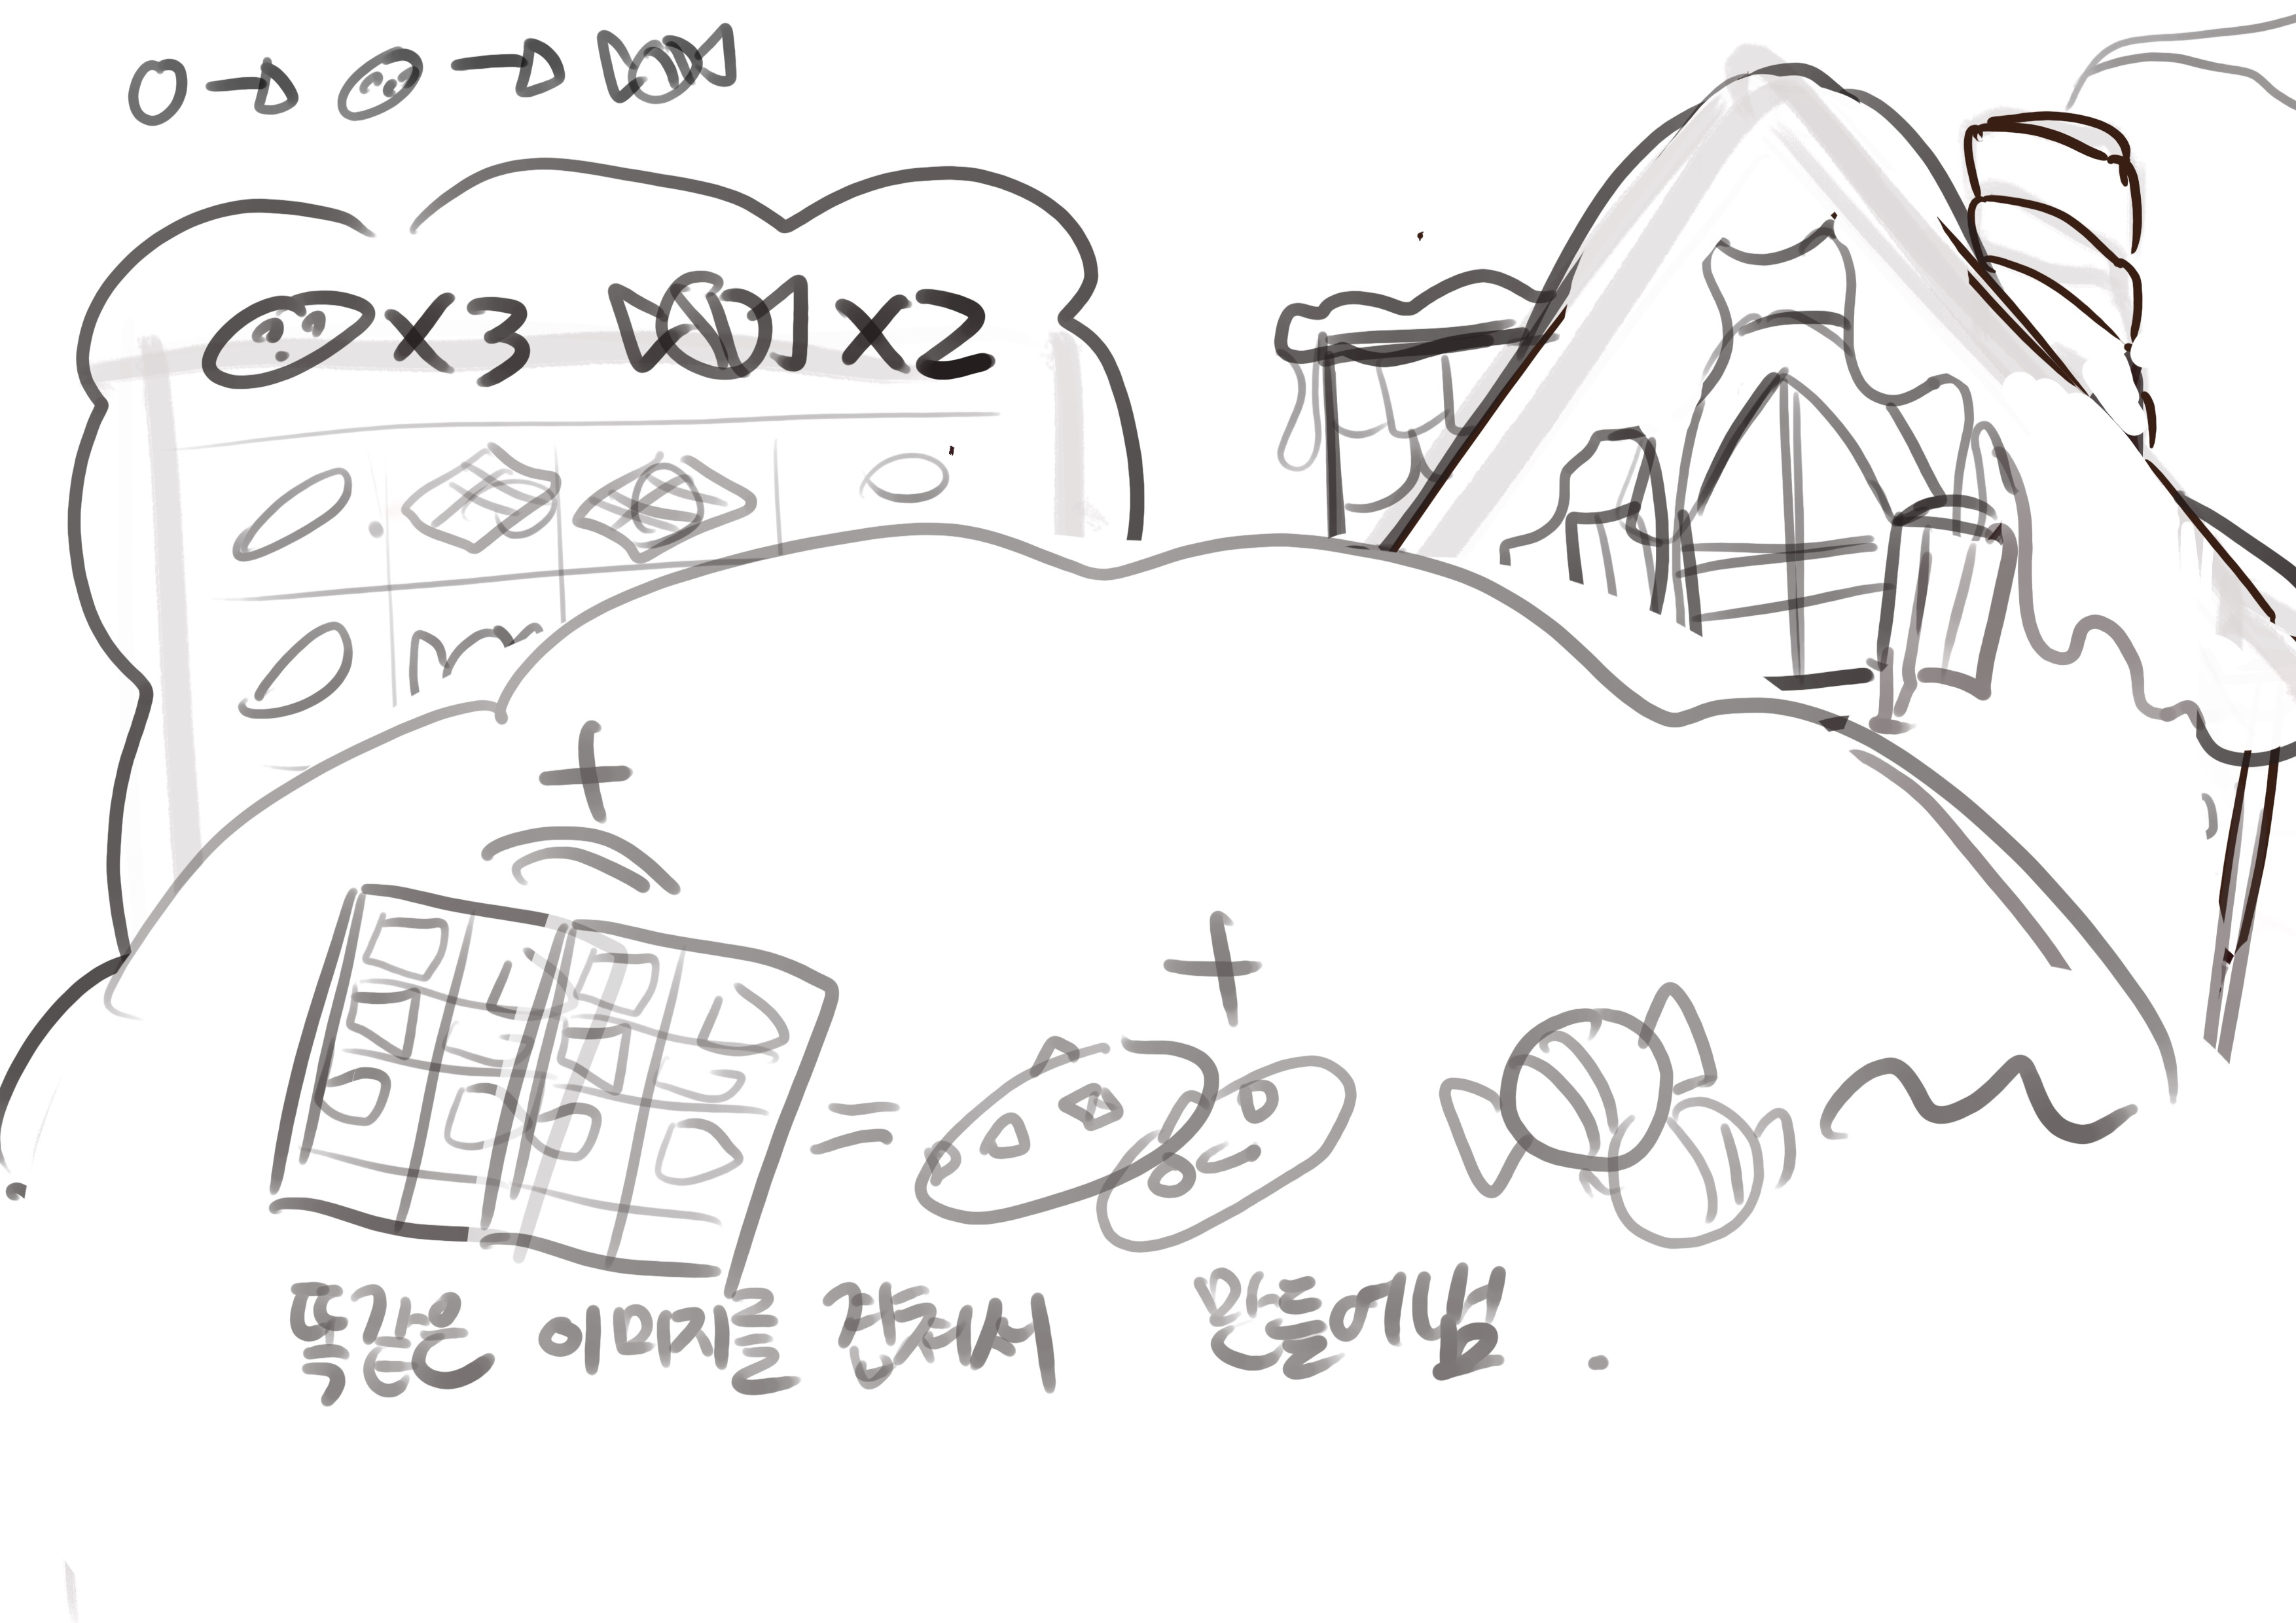 x3 x2
똑같은 이미지를 겹쳐서 만들어버